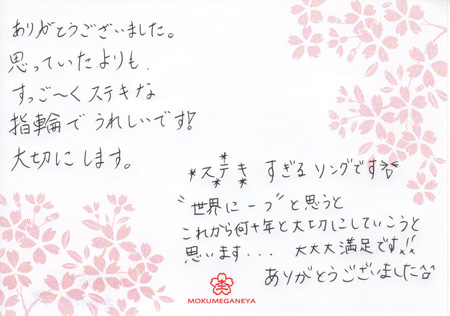 ありがとうございました。
思っていたよりも、
すっご〜くステキな
指輪でうれしいです!
大切にします。
*ステキ* すぎるリングです
"世界に一つ"と思うと
これから何十年と大切にしていこうと
思います... 大大大満足です!!
ありがとうございました^^
MOKUMEGANEYA